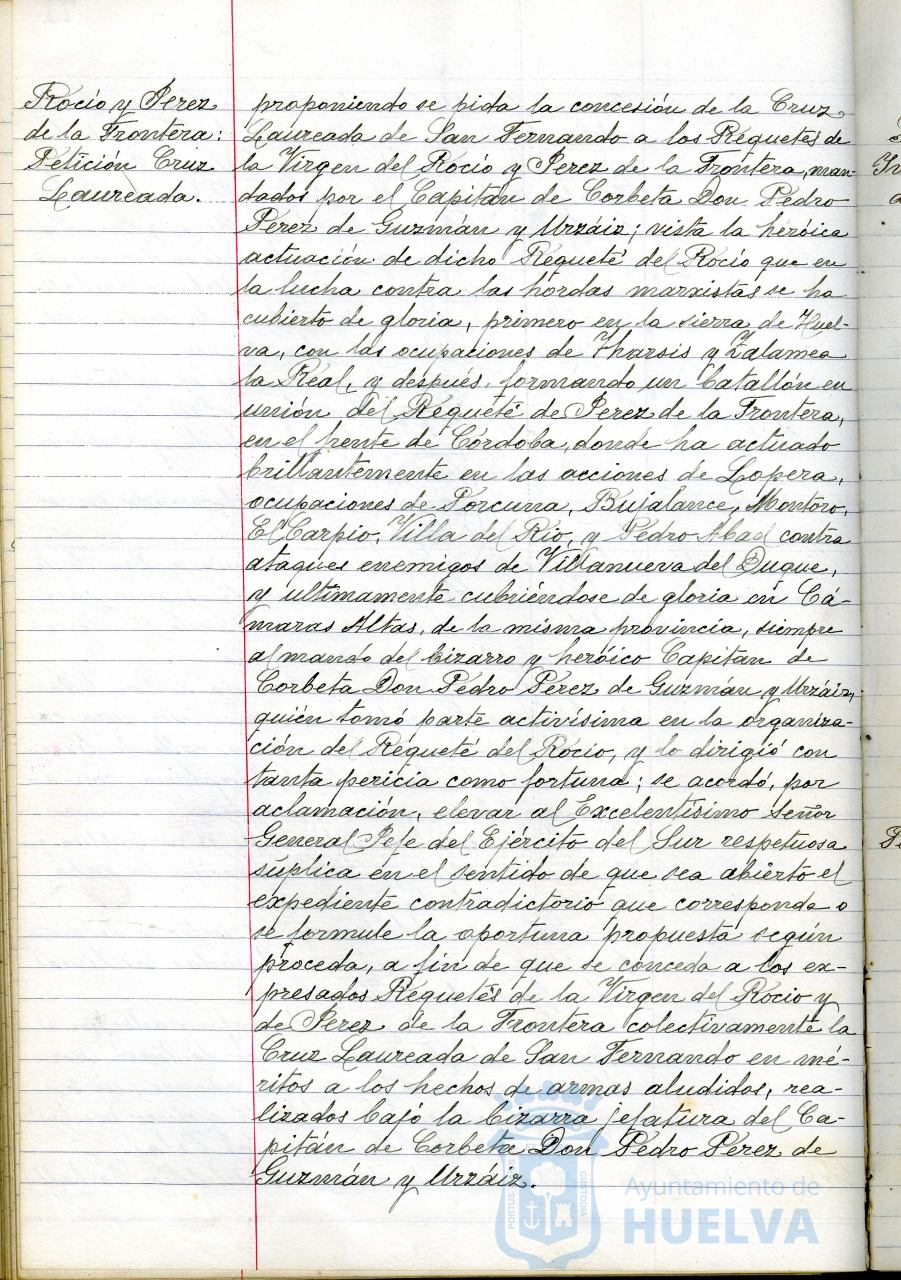 Rocío y Jerez
de la Frontera:
Petición Cruz
Laureada.
proponiendo se pida la concesión de la Cruz
Laureada de San Fernando a los Requetés de
la Virgen del Rocío y Jerez de la Frontera, man-
dados por el Capitán de Corbeta Don Pedro
Pérez de Guzmán y Urzáiz; vista la heróica
actuación de dicho Requeté del Rocío que en
la lucha contra las hordas marxistas se ha
cubierto de gloria, primero en la sierra de Huel-
va, con las ocupaciones de Tharsis y Zalamea
la Real, y después, formando un batallón en
unión del Requeté de Jerez de la Frontera,
en el frente de Córdoba, donde ha actuado
brillantemente en las acciones de Lopera,
ocupaciones de Porcuna, Bujalance, Montoro,
El Carpio, Villa del Río, y Pedro Abad contra
ataques enemigos de Villanueva del Duque,
y ultimamente cubriéndose de gloria en Cá-
maras Altas, de la misma provincia, siempre
al mando del bizarro y heróico Capitan de
Corbeta Don Pedro Pérez de Guzmán y Urzáiz,
quién tomó parte activísima en la organiza-
ción del Requeté del Rocío, y lo dirigió con
tanta pericia como fortuna; se acordó, por
aclamación, elevar al Excelentísimo Señor
General Jefe del Ejército del Sur respetuosa
súplica en el sentido de que sea abierto el
expediente contradictorio que corresponda o
se formule la oportuna propuesta según
proceda, a fin de que se conceda a los ex-
presados Requetés de la Virgen del Rocío y
de Jerez de la Frontera colectivamente la
Cruz Laureada de San Fernando en mé-
ritos a los hechos de armas aludidos, rea-
lizados bajo la bizarra jefatura del Ca-
pitán de Corbeta Don Pedro Pérez de
Guzmán y Urzáiz.
PORTUS CUSTODIA
Ayuntamiento de
HUELVA